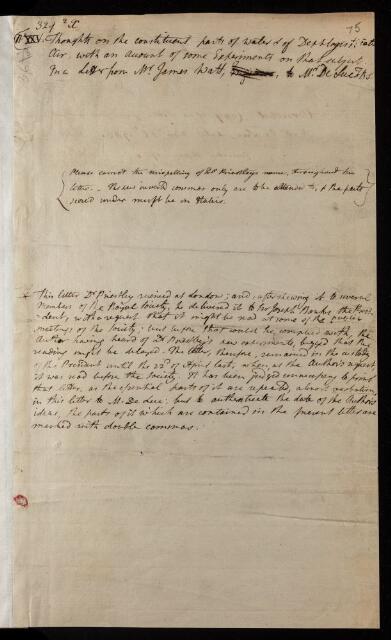 329 2 X
75
XXV. Thoughts on the constituent parts of water & of Dephlogisticated
Air, with an account of some Experiments on that subject
In a Letter from Mr James Watt, to Mr De Luc FRS
Please correct the misspelling of Dr Priestley's name, throughout the
letter. – The inverted commas only are to be attended to, & the parts
scored under must be in Italics.
This letter Dr Priestley received at London; and, after shewing it to several
Members of the Royal Society, he delivered it to Sir Joseph Banks the Presi-
dent, with a request that it might be read at some of the public
meetings of the Society: but before that could be complied with, the
Author having heard of Dr Priestley's new experiments, begged that the
reading might be delayed. The letter, therefore, remained in the custody
of the President until the 22d of April last, when, at the Author's request,
it was read before the Society. It has been judged unnecessary to print
that letter, as the essential parts of it are repeated, almost verbatim,
in this letter to M. De Luc: but to authenticate the date of the Author's
ideas, the parts of it which are contained in the present letter are
marked with double commas.